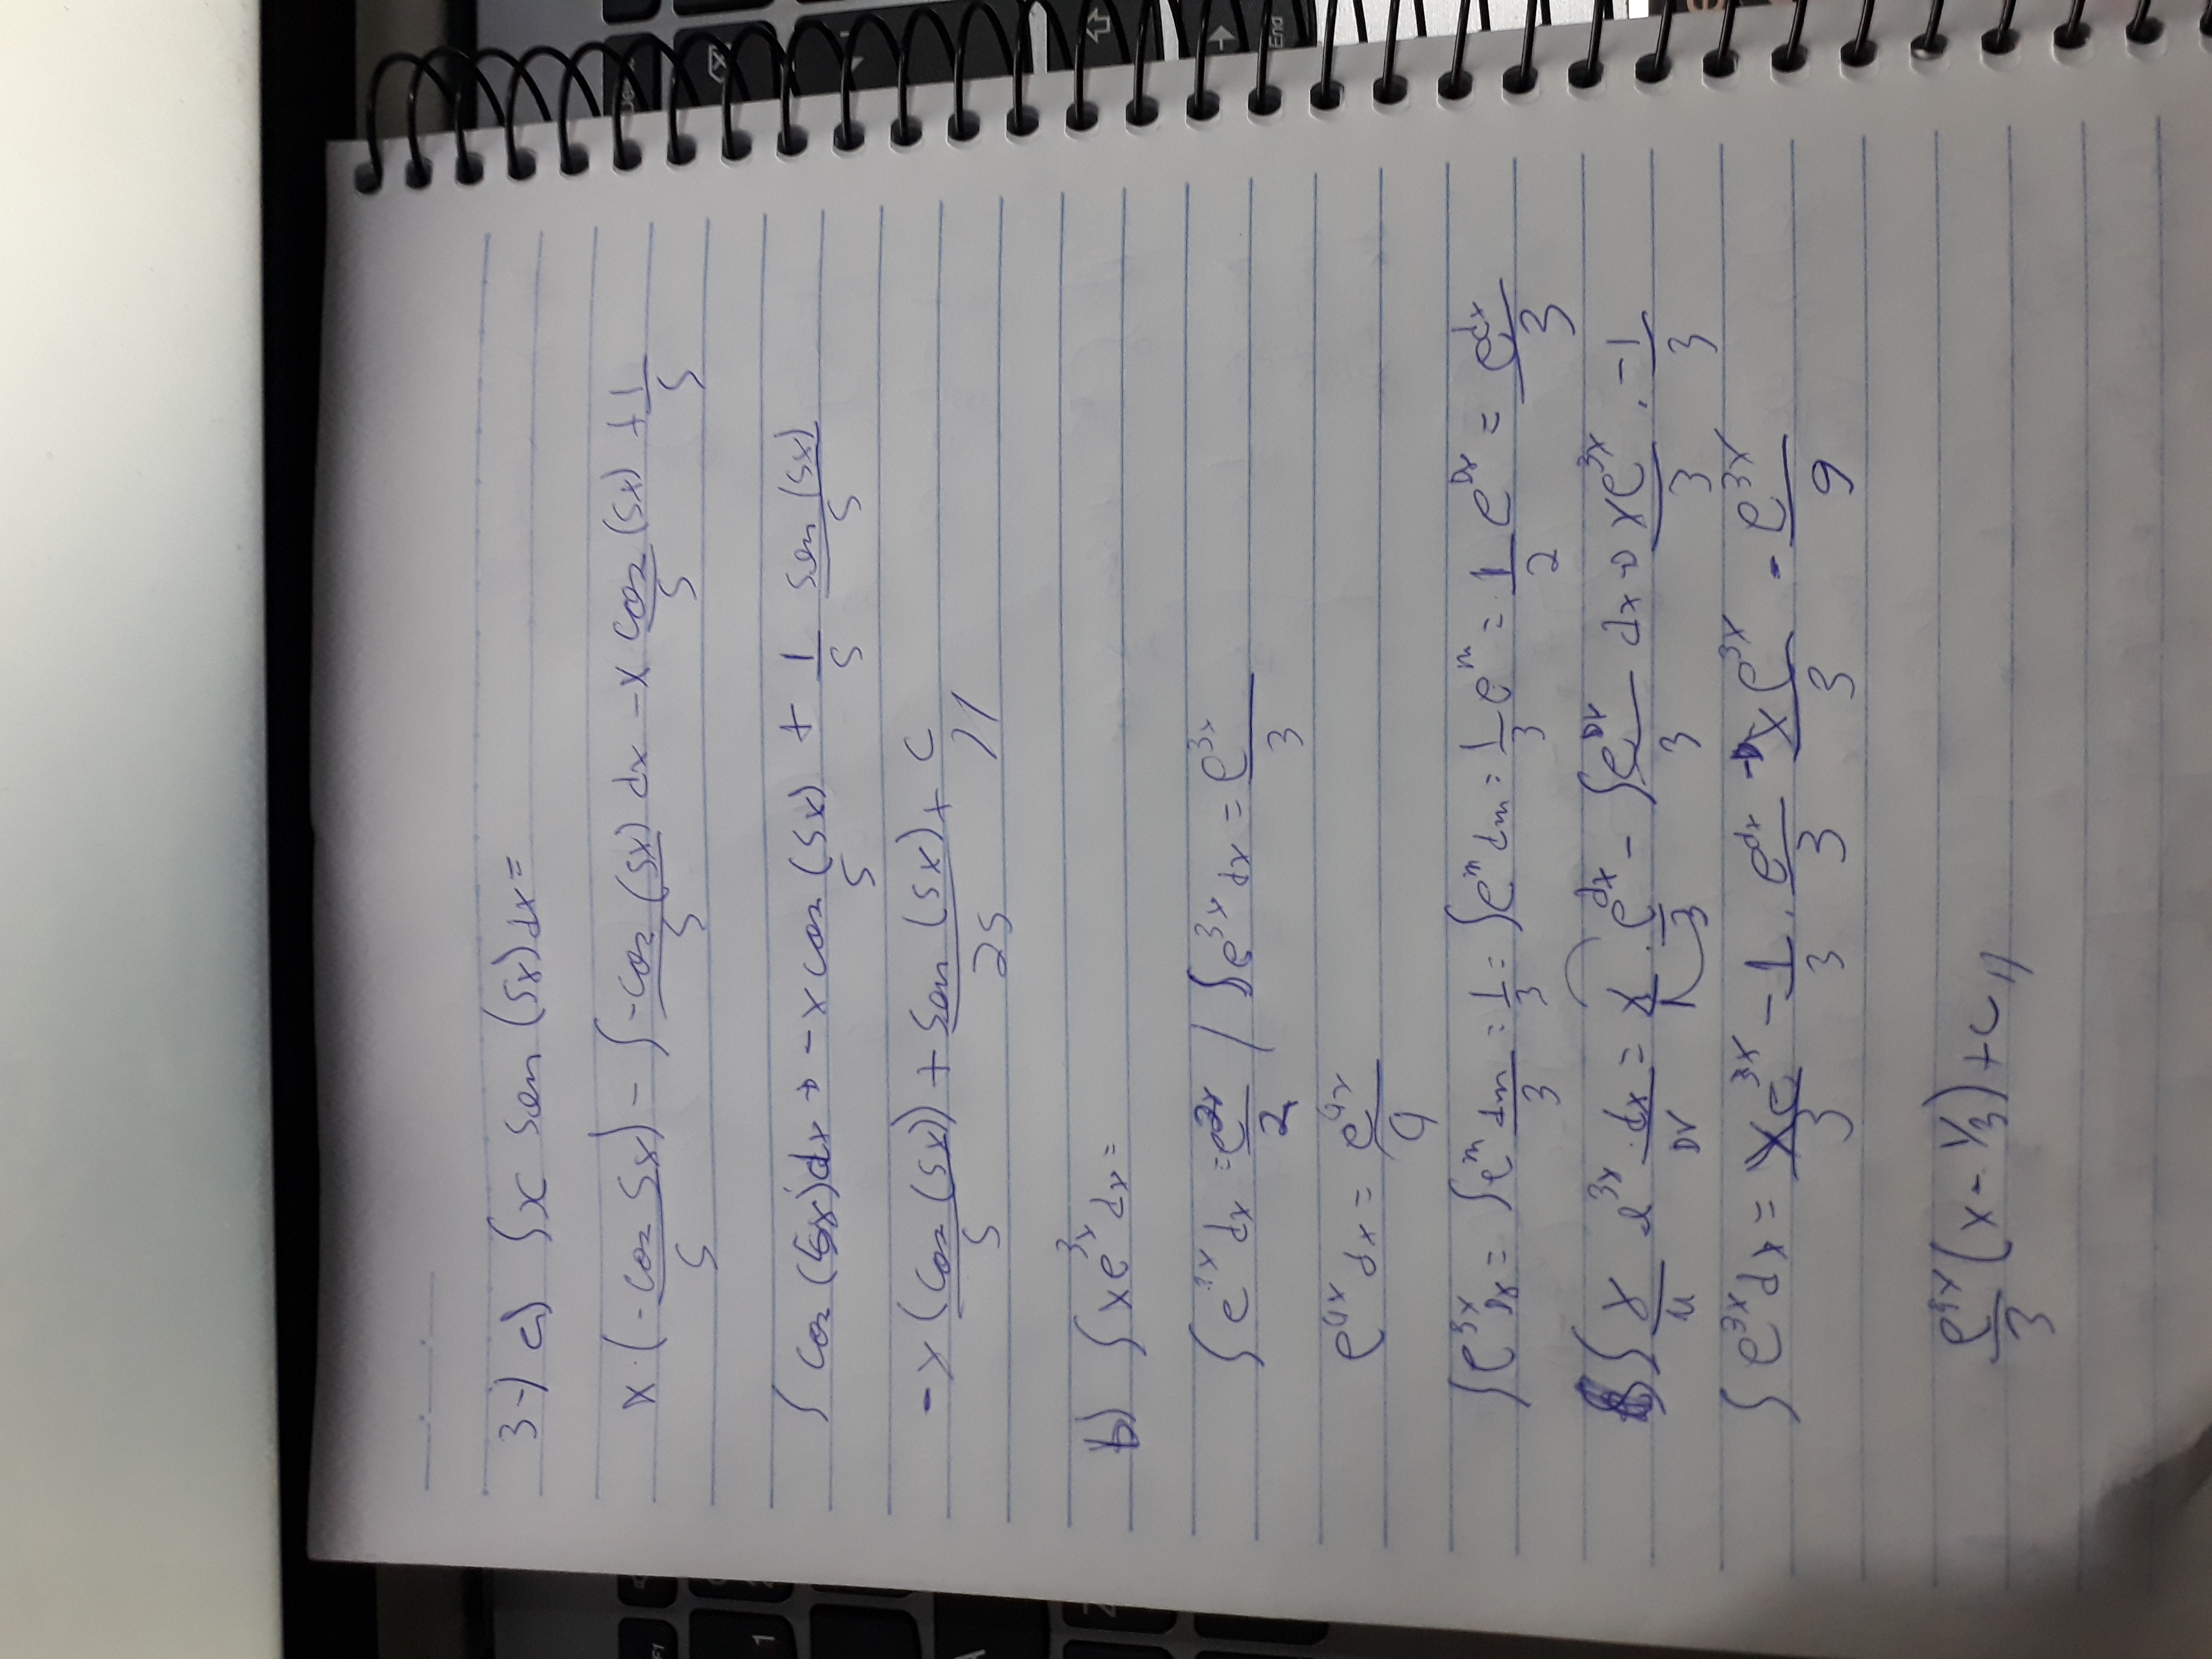 3-) a) ∫x sen (5x) dx =
x·(-cos 5x)/5 - ∫-cos (5x)/5 dx -x cos (5x)/5 + 1/5
∫ cos (5x) dx → -x cos (5x)/5 + 1/5 sen (5x)/5
-x (cos (5x))/5 + sen (5x)/25 + C //
b) ∫xe^3x dx =
∫e^2x dx = e^2x/2 / ∫e^3x dx = e^3x/3
e^4x dx = e^4x/4
∫e^3x dx = ∫e^m dm/3 = 1/3 = ∫e^m dm = 1/3 e^m = 1/2 e^Dx = e^dx/3
∫ x/u e^3x · dx/DV = x/1 · e^dx/3 - ∫e^Dx/3 dx → xe^3x/3 · -1/3
∫ e^3x dx = xe^3x/3 - 1/3 · e^dx/3 → xe^3x/3 - e^3x/9
e^3x/3 (x - 1/3) + c //
F1
1
A
Z
End